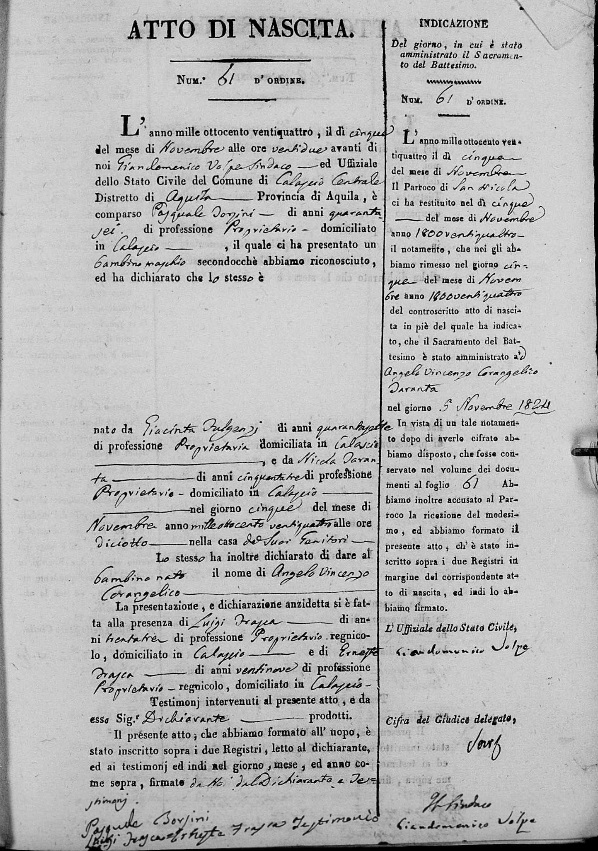 ATTO DI NASCITA.
Num.° 61 D'ORDINE.
L'anno mille ottocento ventiquattro, il dì cinque
del mese di Novembre alle ore ventidue avanti di
noi Giandomenico Volpe Sindaco ed Uffiziale
dello Stato Civile del Comune di Calascio Centrale
Distretto di Aquila Provincia di Aquila, è
comparso Pasquale Borsini di anni quaranta
sei di professione Proprietario domiciliato
in Calascio, il quale ci ha presentato un
bambino maschio secondocchè abbiamo riconosciuto,
ed ha dichiarato che lo stesso è
nato da Giacinta Fulgenzj di anni quarantasette
di professione Proprietaria domiciliata in Calascio
, e da Nicola Taran
ta di anni cinquantatre di professione
Proprietario domiciliato in Calascio
nel giorno cinque del mese di
Novembre anno milleottocento ventiquattro alle ore
diciotto nella casa de Suoi Genitori
Lo stesso ha inoltre dichiarato di dare al
bambino nato il nome di Angelo Vincenzo
Corangelico
La presentazione, e dichiarazione anzidetta si è fat-
ta alla presenza di Luigi Frasca di an-
ni trentatre di professione Proprietario regnico-
lo, domiciliato in Calascio e di Ernesto
Frasca di anni ventinove di professione
Proprietario regnicolo, domiciliato in Calascio
Testimonj intervenuti al presente atto, e da
esso Sig.r Dichiarante prodotti.
Il presente atto, che abbiamo formato all'uopo, è
stato inscritto sopra i due Registri, letto al dichiarante,
ed ai testimonj ed indi nel giorno, mese, ed anno co-
me sopra, firmato da Noi dal Dichiarante e Te-
stimonj
Pasquale Borsini
Luigi Frasca Testimonio
INDICAZIONE
Del giorno, in cui è stato
amministrato il Sacramen-
to del Battesimo.
Num. 61 D'ORDINE.
L'anno mille ottocento ven-
tiquattro il dì cinque
del mese di Novembre
Il Parroco di San Nicola
ci ha restituito nel dì cinque
del mese di Novembre
anno 1800ventiquattro
il notamento, che noi gli ab-
biamo rimesso nel giorno cin-
que del mese di Novem
bre anno 1800ventiquattro
del controscritto atto di nasci-
ta in piè del quale ha indica-
to, che il Sacramento del Bat-
tesimo è stato amministrato ad
Angelo Vincenzo Corangelico
Taranta
nel giorno 5 Novembre 1824
In vista di un tale notamento
dopo di averlo cifrato ab-
biamo disposto, che fosse con-
servato nel volume dei docu-
menti al foglio 61 Ab-
biamo inoltre accusato al Par-
roco la ricezione del medesi-
mo, ed abbiamo formato il
presente atto, ch'è stato in-
scritto sopra i due Registri in
margine del corrispondente at-
to di nascita, ed indi lo ab-
biamo firmato.
L'Uffiziale dello Stato Civile,
Giandomenico Volpe
Cifra del Giudice delegato,
Il Sindaco
Giandomenico Volpe